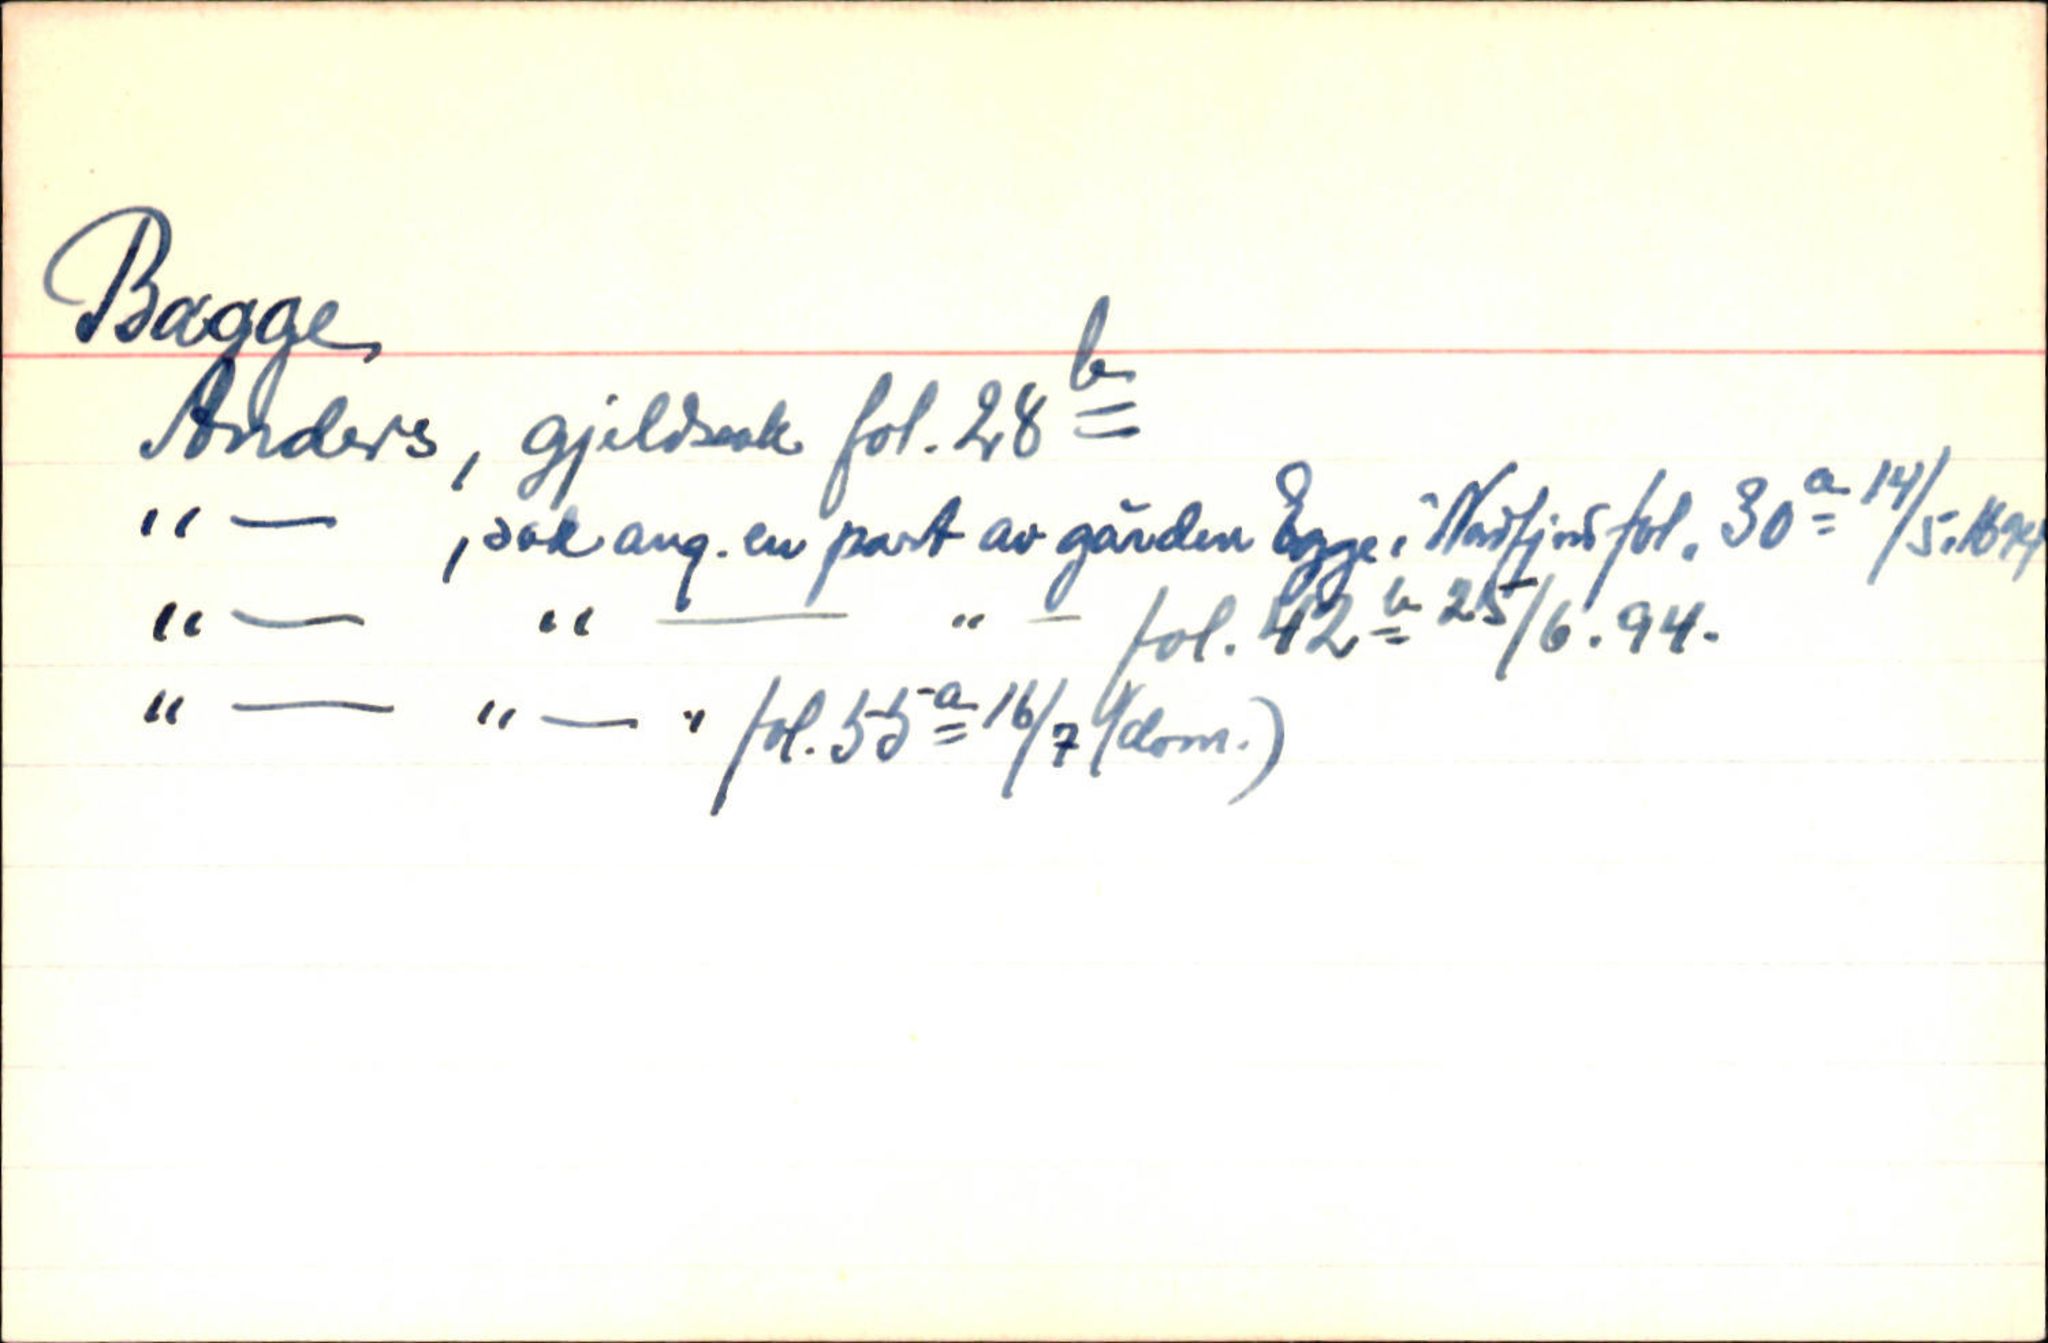 Bagge
Anders, gjeldssak fol. 28 b
" — , sak ang. en part av gården Egge i Nordfjord fol. 30 a 14/5. 1694
" — " — " — fol. 42 b 25/6. 94.
" — " — " fol. 55 a 16/7 (dom.)